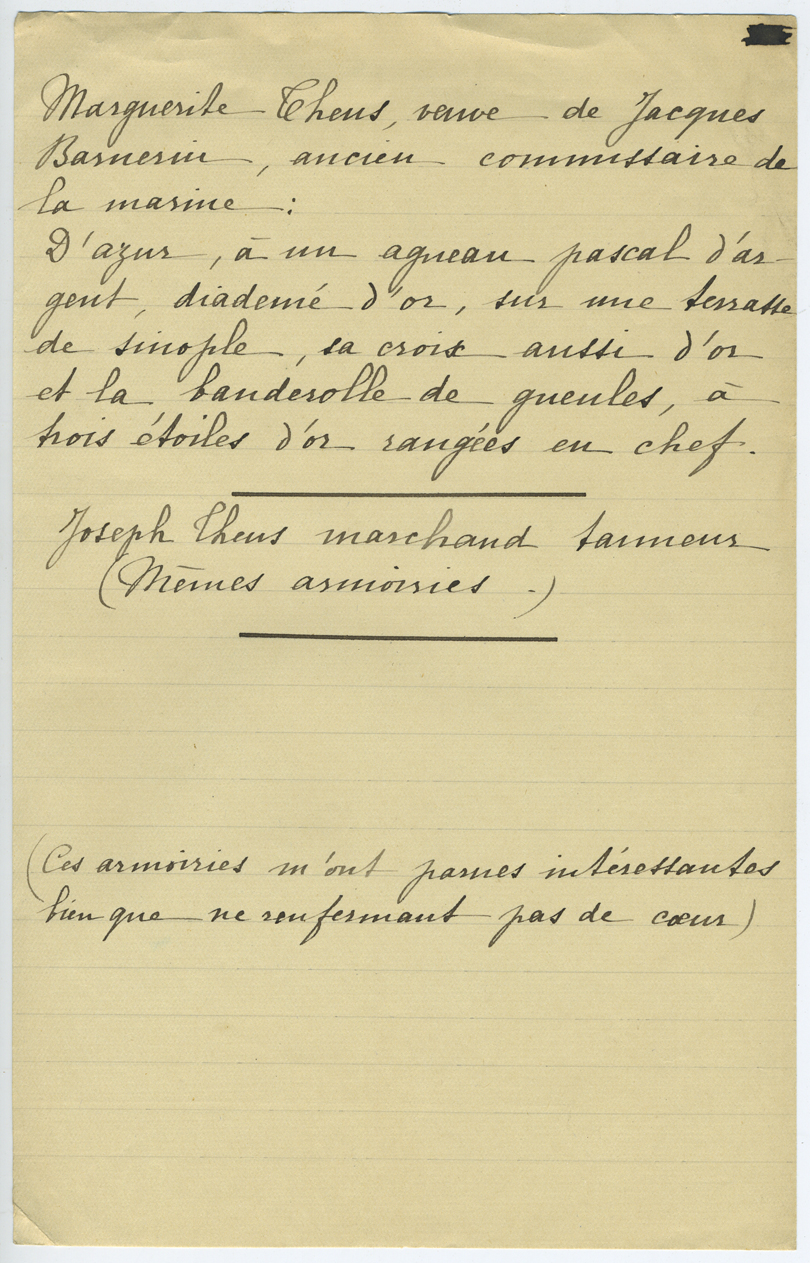 Marguerite Theus, veuve de Jacques
Barnerin, ancien commissaire de
la marine :
D'azur, à un agneau pascal d'ar-
gent, diademé d'or, sur une terrasse
de sinople, sa croix aussi d'or
et la banderolle de gueules, à
trois étoiles d'or rangées en chef.
Joseph Theus marchand tanneur
(Mêmes armoiries.)
(Ces armoiries m'ont parues intéressantes
bien que ne renfermant pas de cœur)